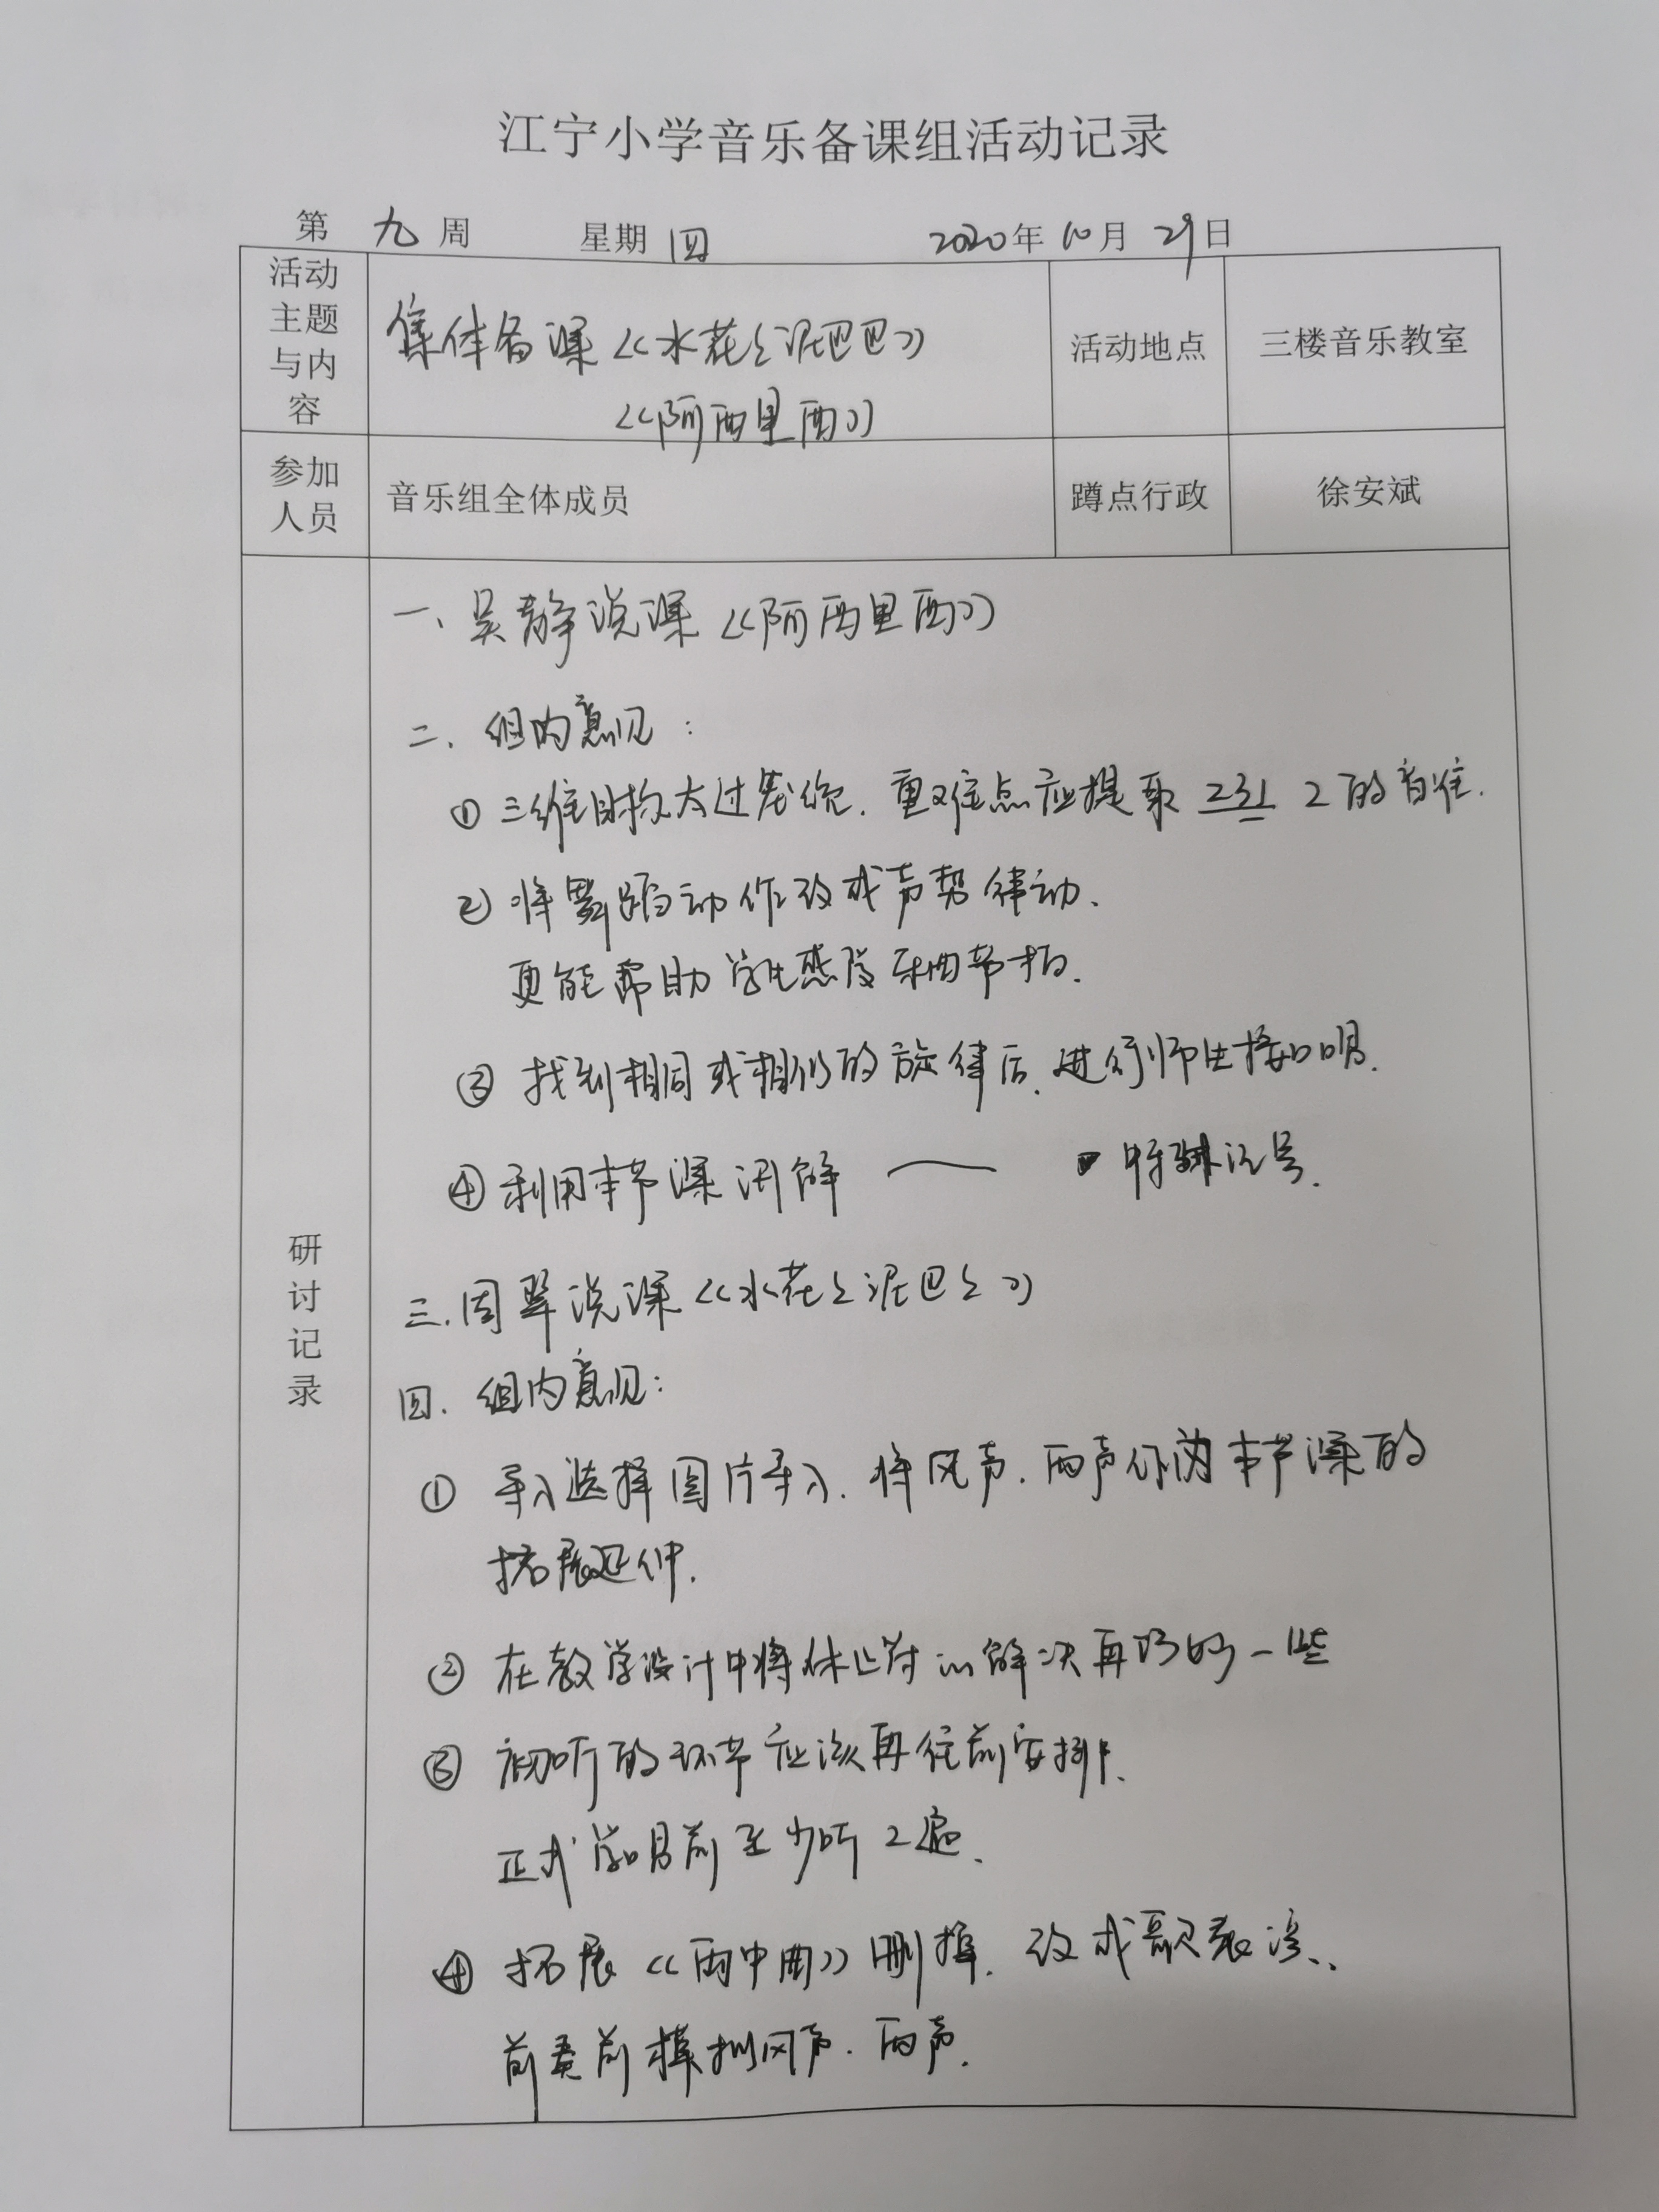 江宁小学音乐备课组活动记录
第 九 周 星期 四 2020年 10月 29日
活动主题与内容
集体备课《水花々泥巴巴》
《阿西里西》
活动地点
三楼音乐教室
参加人员
音乐组全体成员
蹲点行政
徐安斌
研讨记录
一、吴静说课《阿西里西》
二、组内意见：
① 三维目标太过笼统. 重难点应提取 231 2 的音准.
② 将舞蹈动作改成声势律动、
更能帮助学生感受乐曲节拍.
③ 找到相同或相似的旋律后、进行师生接口唱.
④ 利用本节课讲解 ⌒ 特殊记号.
三.周翠说课《水花々泥巴々》
四. 组内意见：
① 导入选择图片导入. 将风声. 雨声作为本节课的
拓展延伸.
② 在教学设计中将休止符的解决再巧妙一些
③ 初听的环节应该再往前安排、
正式学唱前至少听2遍、
④ 拓展《雨中曲》删掉. 改成歌表演、
前奏前模拟风声. 雨声.